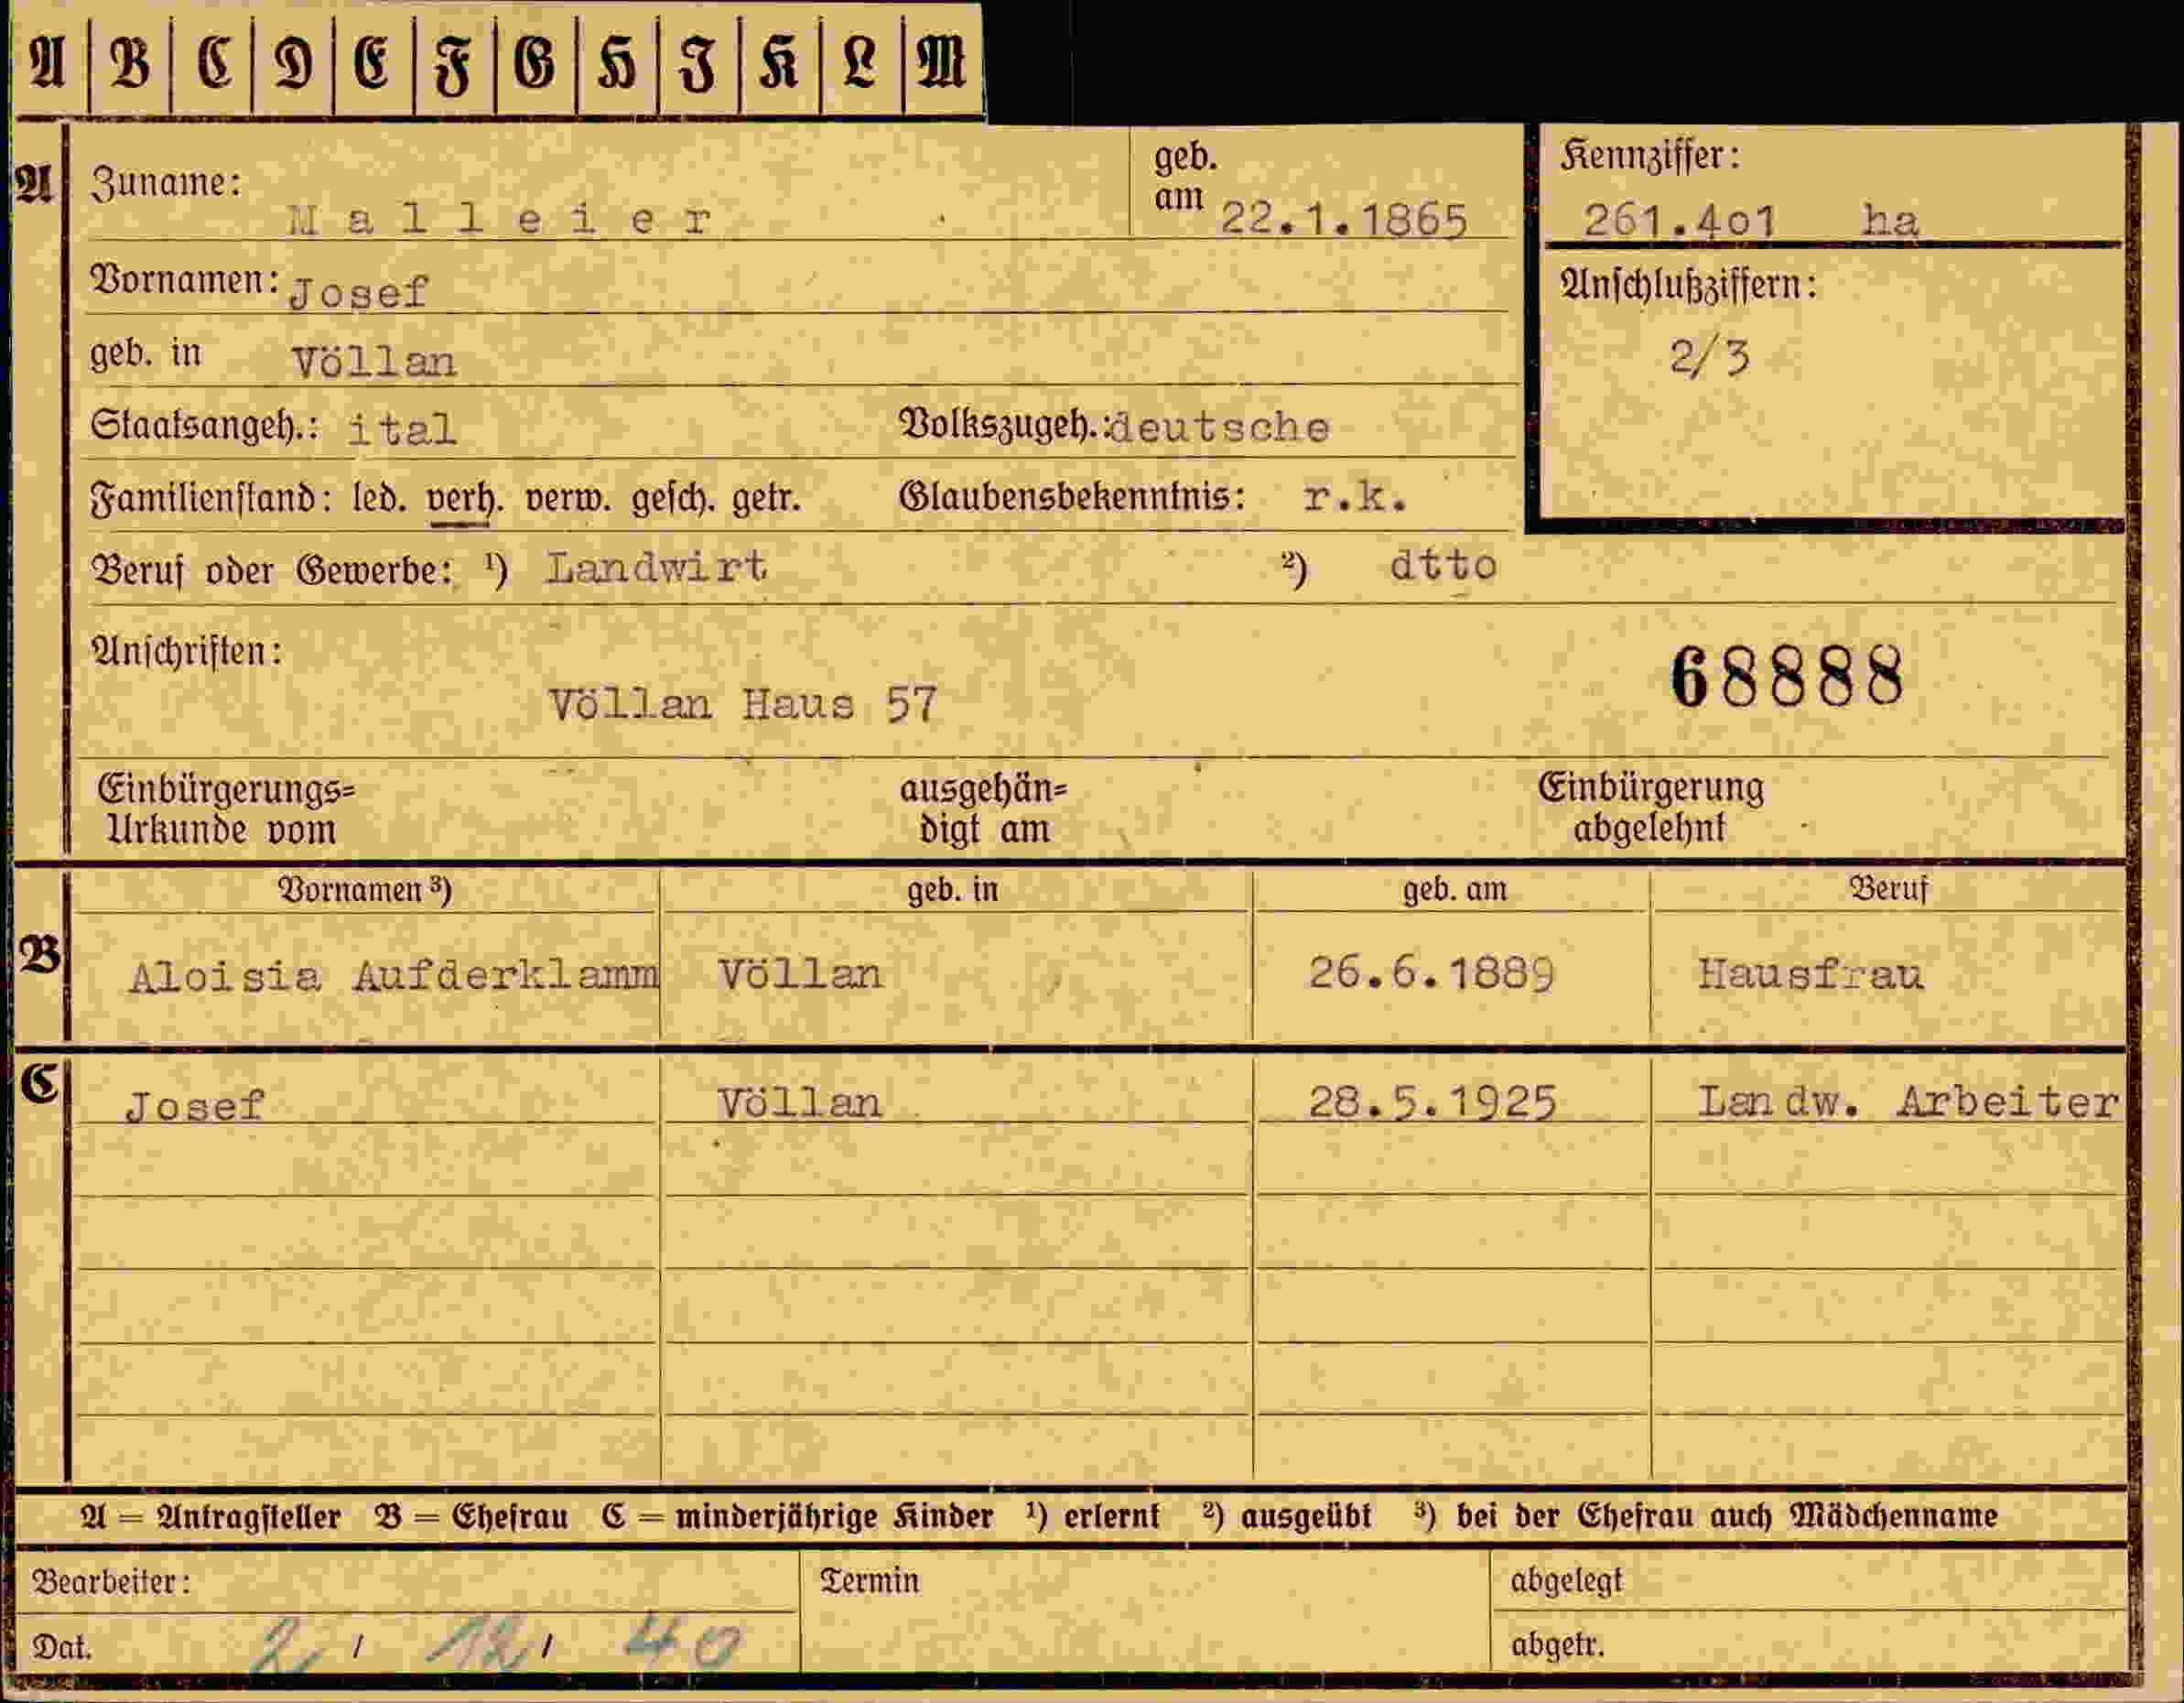 A B C D E F G H I K L M
A Zuname: Malleier geb. am 22.1.1865 Kennziffer: 261.4o1 ha
Vornamen: Josef Anschlußziffern:
geb. in Völlan 2/3
Staatsangeh.: ital Volkszugeh.: deutsche
Familienstand: led. verh. verw. gesch. getr. Glaubensbekenntnis: r.k.
Beruf oder Gewerbe: ¹) Landwirt ²) dtto
Anschriften: 68888
Völlan Haus 57
Einbürgerungs= ausgehän= Einbürgerung
Urkunde vom digt am abgelehnt
Vornamen ³) geb. in geb. am Beruf
B Aloisia Aufderklamm Völlan 26.6.1889 Hausfrau
C Josef Völlan 28.5.1925 Landw. Arbeiter
A = Antragsteller B = Ehefrau C = minderjährige Kinder ¹) erlernt ²) ausgeübt ³) bei der Ehefrau auch Mädchenname
Bearbeiter: Termin abgelegt
Dat. 2 / 12 / 40 abgetr.